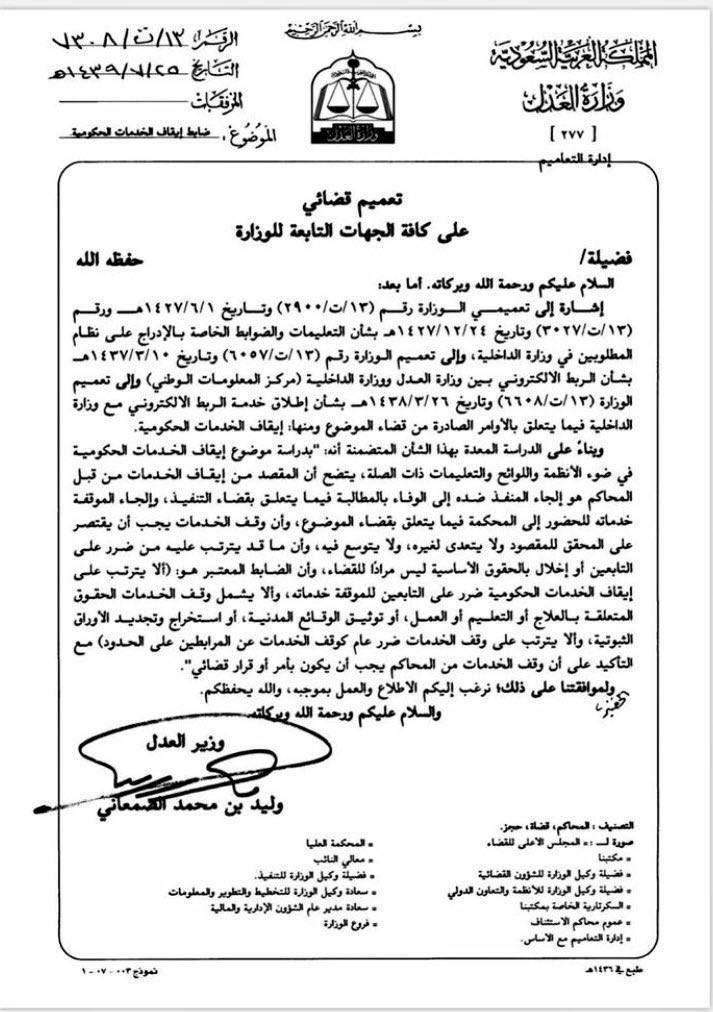 بسم الله الرحمن الرحيم
المملكة العربية السعودية
وزارة العدل
[ ٢٧٧ ]
إدارة التعاميم
وزارة العدل
الرقم: ١٣/ت/٧٣٠٨
التاريخ: ١٤٣٩/٧/٢٥هـ
المرفقات:
الموضوع: ضابط إيقاف الخدمات الحكومية
تعميم قضائي
على كافة الجهات التابعة للوزارة
فضيلة/ حفظه الله
السلام عليكم ورحمة الله وبركاته. أما بعد:
إشارة إلى تعميمي الوزارة رقم (١٣/ت/٢٩٠٠) وتاريخ ١٤٢٧/٦/١هـ ورقم
(١٣/ت/٣٠٢٧) وتاريخ ١٤٢٧/١٢/٢٤هـ بشأن التعليمات والضوابط الخاصة بالإدراج على نظام
المطلوبين في وزارة الداخلية، وإلى تعميم الوزارة رقم (١٣/ت/٦٠٥٧) وتاريخ ١٤٣٧/٣/١٠هـ
بشأن الربط الالكتروني بين وزارة العدل ووزارة الداخلية (مركز المعلومات الوطني) وإلى تعميم
الوزارة (١٣/ت/٦٦٠٨) وتاريخ ١٤٣٨/٣/٢٦هـ بشأن إطلاق خدمة الربط الالكتروني مع وزارة
الداخلية فيما يتعلق بالأوامر الصادرة من قضاء الموضوع ومنها: إيقاف الخدمات الحكومية.
وبناءً على الدراسة المعدة بهذا الشأن المتضمنة أنه: "بدراسة موضوع إيقاف الخدمات الحكومية
في ضوء الأنظمة واللوائح والتعليمات ذات الصلة، يتضح أن المقصد من إيقاف الخدمات من قبل
المحاكم هو إلجاء المنفذ ضده إلى الوفاء بالمطالبة فيما يتعلق بقضاء التنفيذ، وإلجاء الموقفة
خدماته للحضور إلى المحكمة فيما يتعلق بقضاء الموضوع، وأن وقف الخدمات يجب أن يقتصر
على المحقق للمقصود ولا يتعدى لغيره، ولا يتوسع فيه، وأن ما قد يترتب عليه من ضرر على
التابعين أو إخلال بالحقوق الأساسية ليس مرادًا للقضاء، وأن الضابط المعتبر هو: (ألا يترتب على
إيقاف الخدمات الحكومية ضرر على التابعين للموقفة خدماته، وألا يشمل وقف الخدمات الحقوق
المتعلقة بالعلاج أو التعليم أو العمل، أو توثيق الوقائع المدنية، أو استخراج وتجديد الأوراق
الثبوتية، وألا يترتب على وقف الخدمات ضرر عام كوقف الخدمات عن المرابطين على الحدود) مع
التأكيد على أن وقف الخدمات من المحاكم يجب أن يكون بأمر أو قرار قضائي".
ولموافقتنا على ذلك؛ نرغب إليكم الاطلاع والعمل بموجبه، والله يحفظكم.
والسلام عليكم ورحمة الله وبركاته
وزير العدل
وليد بن محمد الصمعاني
التصنيف : المحاكم، قضاة، حجز.
صورة لـ : * المجلس الأعلى للقضاء
* مكتبنا
* فضيلة وكيل الوزارة للشؤون القضائية
* فضيلة وكيل الوزارة للأنظمة والتعاون الدولي
* السكرتارية الخاصة بمكتبنا
* عموم محاكم الاستئناف
* إدارة التعاميم مع الأساس.
* المحكمة العليا
* معالي النائب
* فضيلة وكيل الوزارة للتنفيذ.
* سعادة وكيل الوزارة للتخطيط والتطوير والمعلومات
* سعادة مدير عام الشؤون الإدارية والمالية
* فروع الوزارة
طبع في ١٤٣٦هـ
نموذج ٠٠٣ - ٠٧ - ١